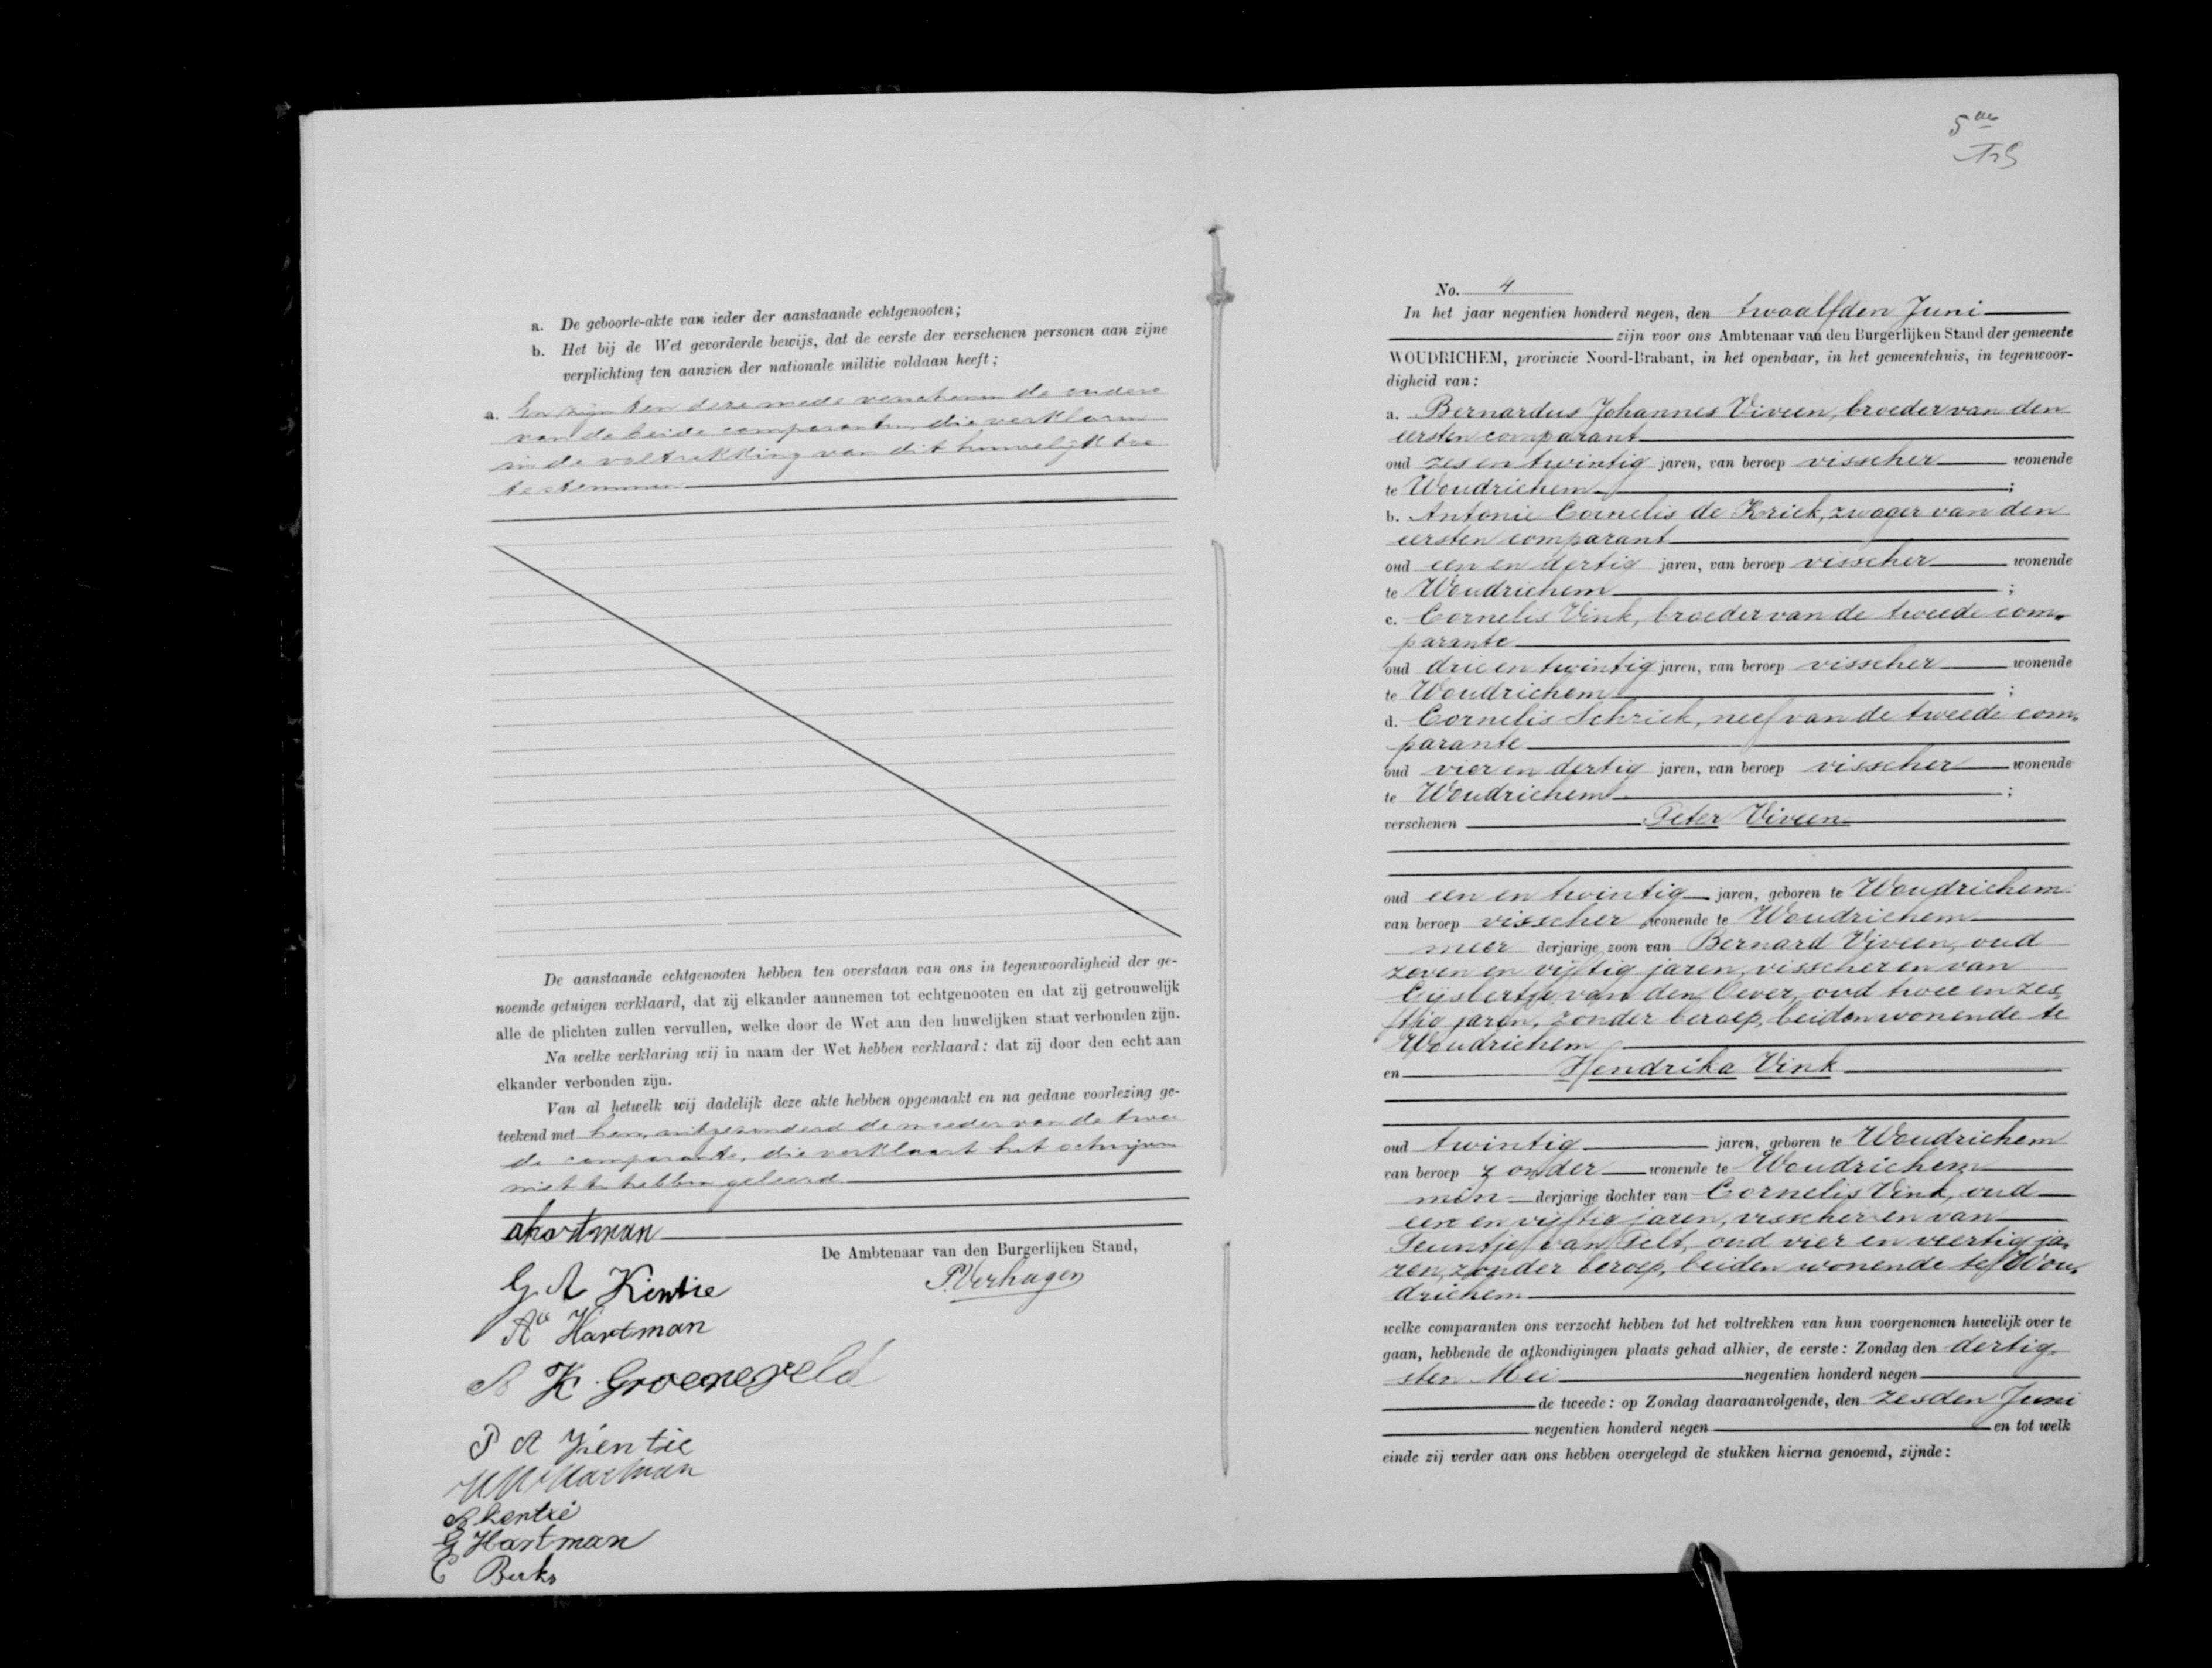 a. De geboorte-akte van ieder der aanstaande echtgenooten;
b. Het bij de Wet gevorderde bewijs, dat de eerste der verschenen personen aan zijne
verplichting ten aanzien der nationale militie voldaan heeft;
a. En zijn ten deze mede verschenen de ouders
van de beide comparanten, die verklaren
in de voltrekking van dit huwelijk toe
te stemmen
De aanstaande echtgenooten hebben ten overstaan van ons in tegenwoordigheid der ge-
noemde getuigen verklaard, dat zij elkander aannemen tot echtgenooten en dat zij getrouwelijk
alle de plichten zullen vervullen, welke door de Wet aan den huwelijken staat verbonden zijn.
Na welke verklaring wij in naam der Wet hebben verklaard: dat zij door den echt aan
elkander verbonden zijn.
Van al hetwelk wij dadelijk deze akte hebben opgemaakt en na gedane voorlezing ge-
teekend met hen, uitgezonderd de moeder van de twee
de comparante, die verklaart het schrijven
niet te hebben geleerd
A Hartman
De Ambtenaar van den Burgerlijken Stand,
G. A Kintie
P. Verhagen
Aa Hartman
A K. Groeneveld
P A Kentie
Hartman
A Kentie
G Hartman
C Burks
5de
No. 4
In het jaar negentien honderd negen, den twaalfden Juni
zijn voor ons Ambtenaar van den Burgerlijken Stand der gemeente
WOUDRICHEM, provincie Noord-Brabant, in het openbaar, in het gemeentehuis, in tegenwoor-
digheid van:
a. Bernardus Johannes Viveen, broeder van den
eersten comparant
oud zes en twintig jaren, van beroep visscher wonende
te Woudrichem ;
b. Antonie Cornelis de Kriek, zwager van den
eersten comparant
oud een en dertig jaren, van beroep visscher wonende
te Woudrichem ;
c. Cornelis Vink, broeder van de tweede com-
parante
oud drie en twintig jaren, van beroep visscher wonende
te Woudrichem ;
d. Cornelis Schriek, neef van de tweede com-
parante
oud vier en dertig jaren, van beroep visscher wonende
te Woudrichem ;
verschenen Peter Viveen
oud een en twintig jaren, geboren te Woudrichem
van beroep visscher wonende te Woudrichem
meer derjarige zoon van Bernard Viveen, oud
zeven en vijftig jaren, visscher en van
Gijsbertje van den Oever, oud twee en zes
tig jaren, zonder beroep, beiden wonende te
Woudrichem
en Hendrika Vink
oud twintig jaren, geboren te Woudrichem
van beroep zonder wonende te Woudrichem
min derjarige dochter van Cornelis Vink, oud
een en vijftig jaren, visscher en van
Teuntje van Pelt, oud vier en veertig ja-
ren, zonder beroep, beiden wonende te Wou-
drichem
welke comparanten ons verzocht hebben tot het voltrekken van hun voorgenomen huwelijk over te
gaan, hebbende de afkondigingen plaats gehad alhier, de eerste: Zondag den dertig-
sten Mei negentien honderd negen
de tweede: op Zondag daaraanvolgende, den zesden Juni
negentien honderd negen en tot welk
einde zij verder aan ons hebben overgelegd de stukken hierna genoemd, zijnde: